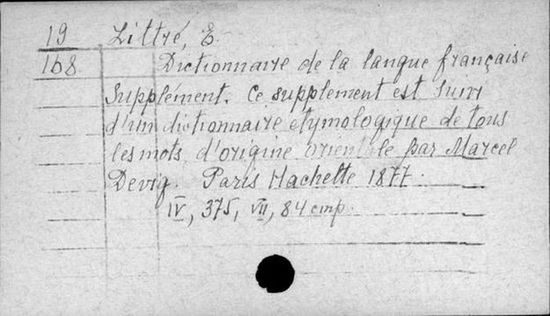 19 Littré, E.
168 Dictionnaire de la langue française
Supplément. Ce supplement est suivi
d'un dictionnaire etymologique de tous
les mots d'origine orientale par Marcel
Devig. Paris Hachette 1877.
IV, 375, VII, 84 cmp.